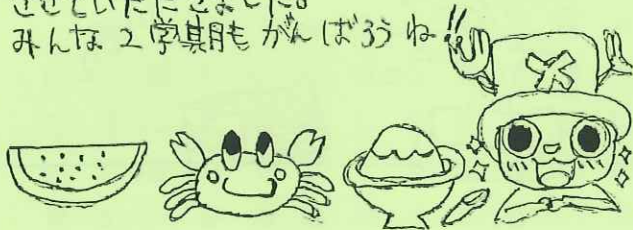 させていただきました。
みんな2学期もがんばろうね!!